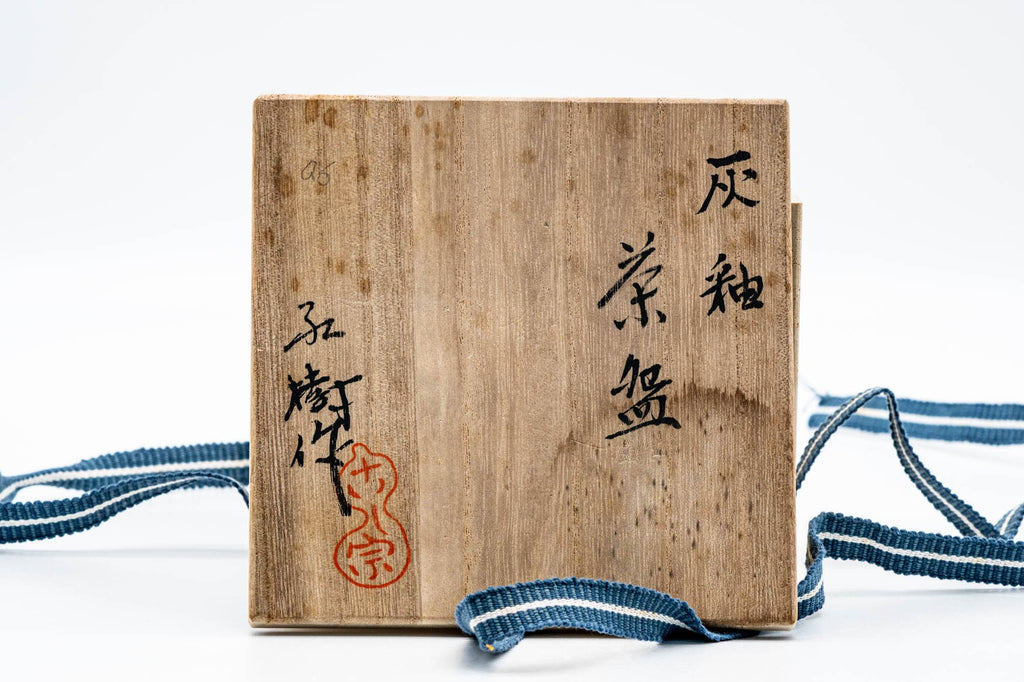 灰釉
茶盌
弘樹作
宗